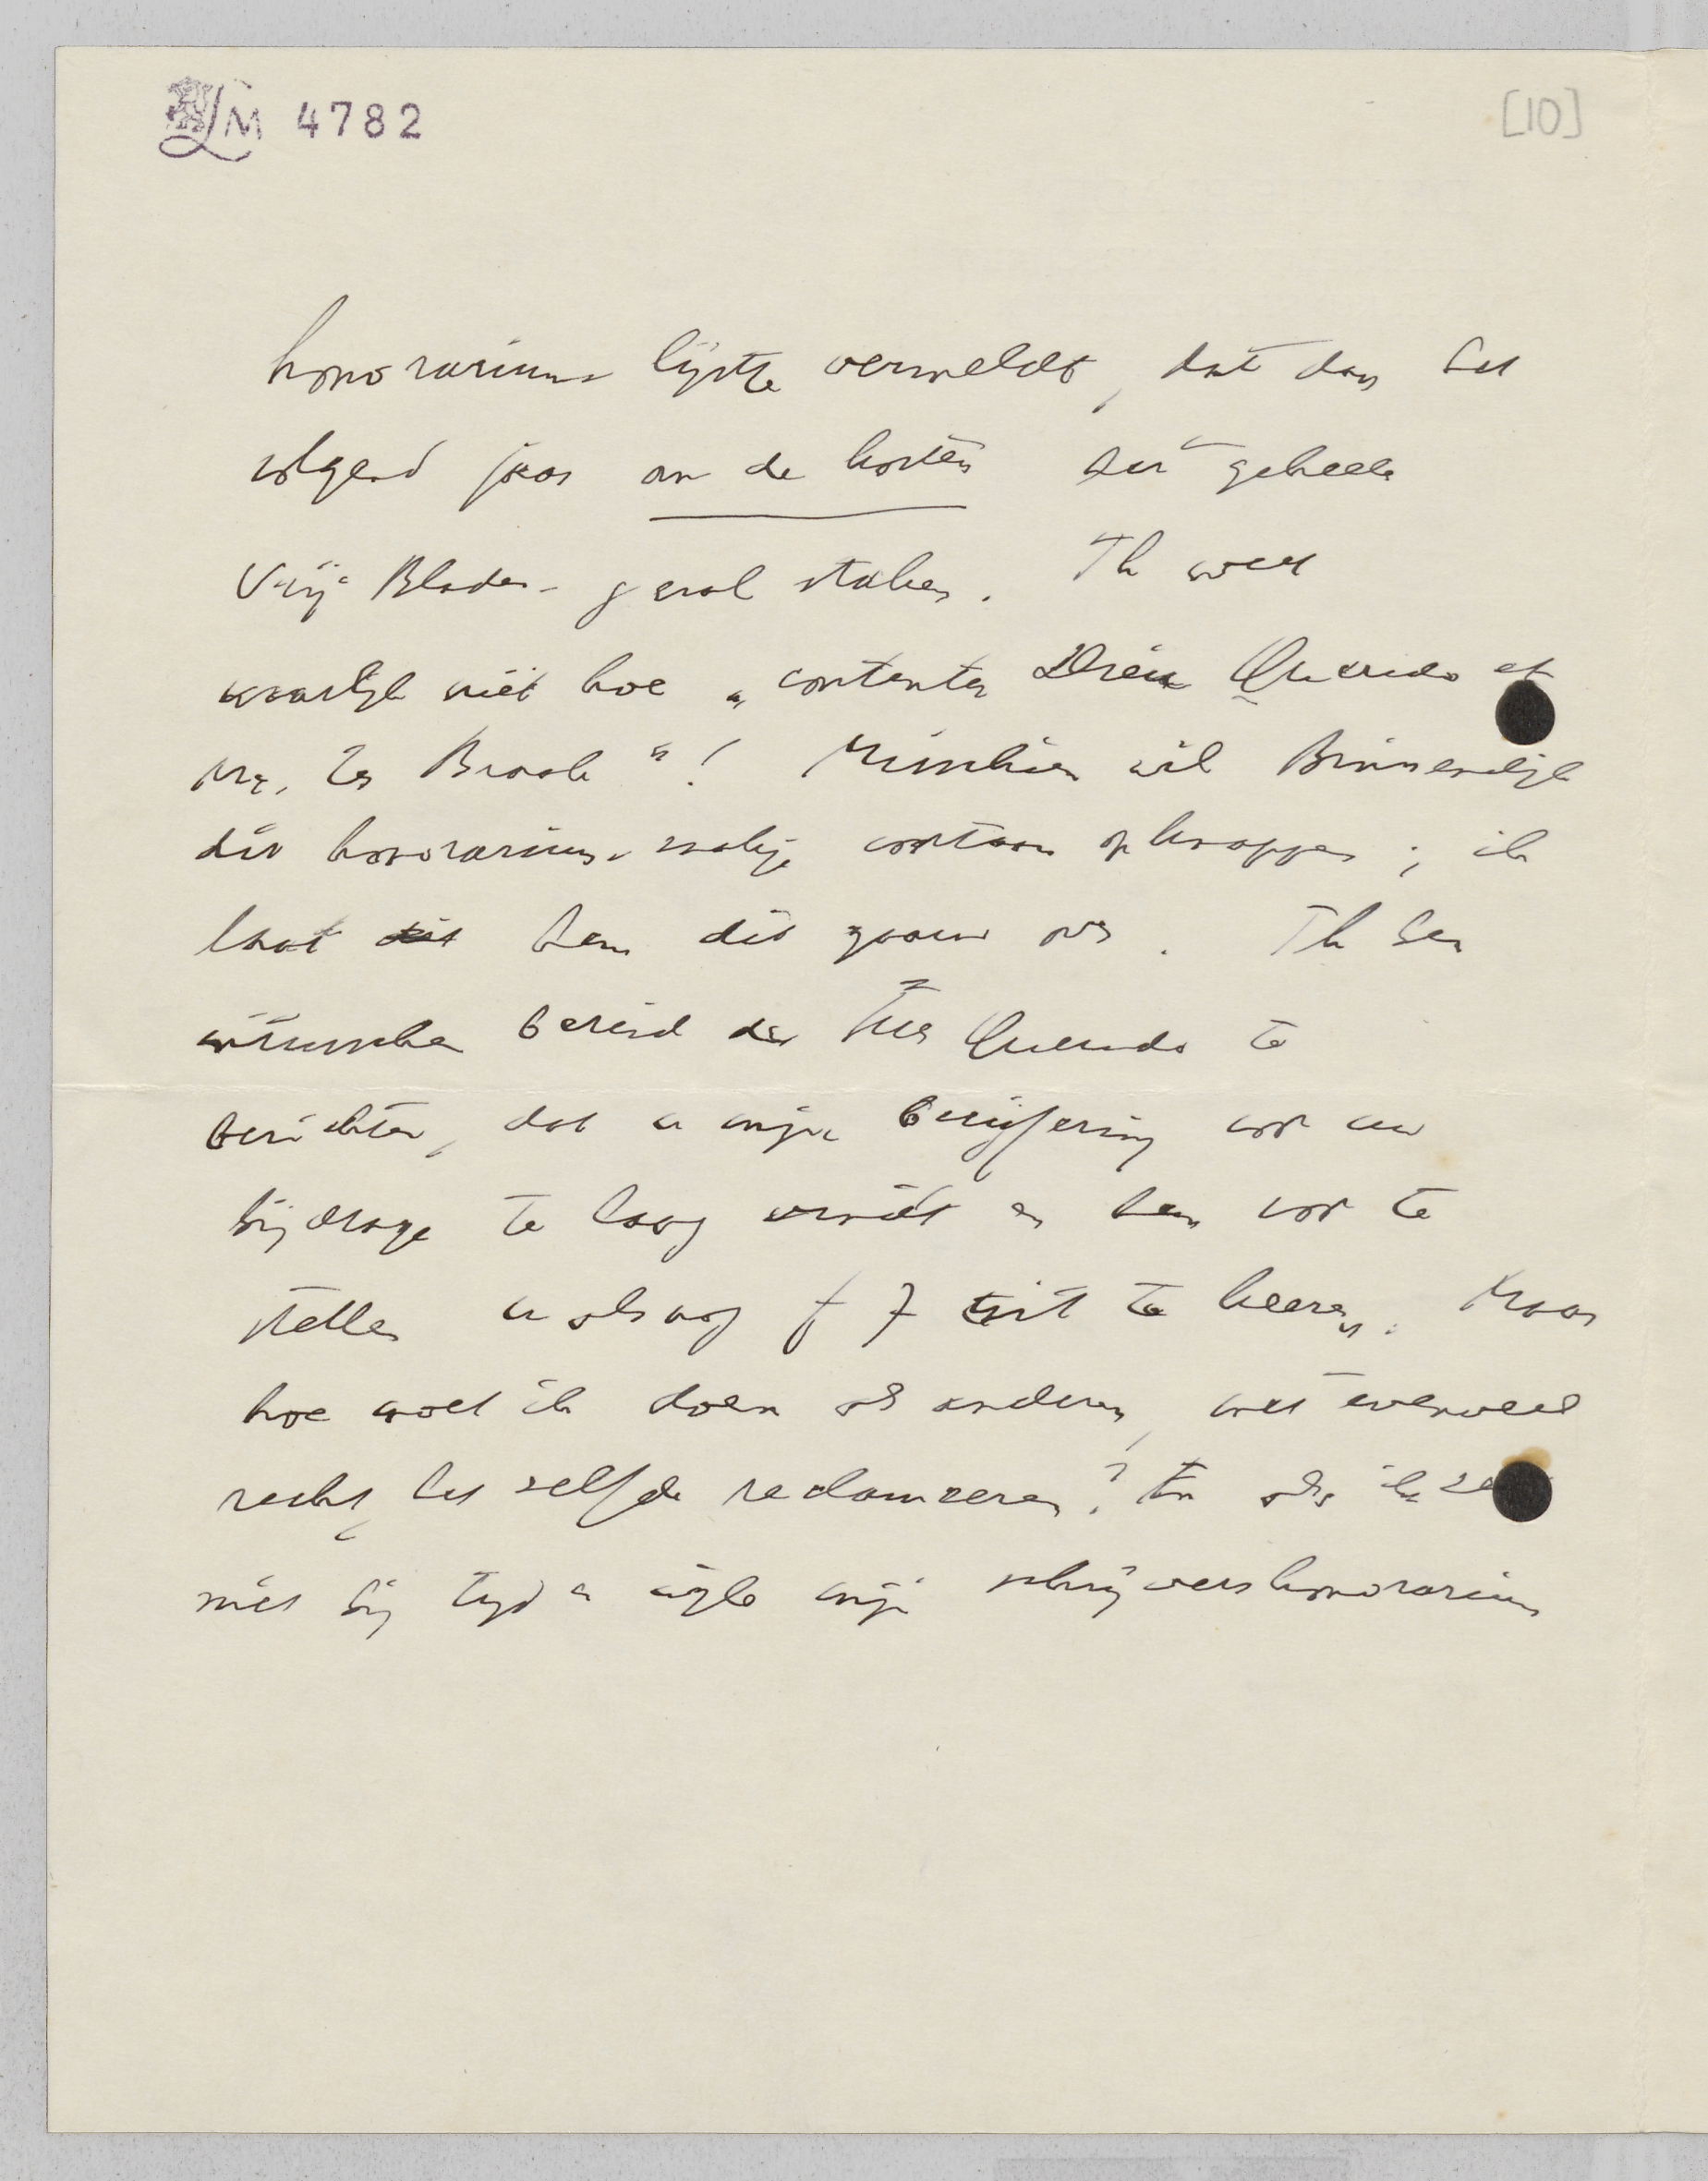 LM 4782
[10]
honorarium-lijstje vermeldt, dat dan het
volgend jaar om de kosten het geheele
Vrije Bladen-geval staken. Ik weet
waarlijk niet hoe „contenter Querido et
Mr. Ter Braak"! Misschien wil Binnendijk
dit honorarium-zaakje voortaan opknappen; ik
laat dit hem dit gaarne over. Ik ben
intusschen bereid den heer Querido te
berichten, dat u mijn becijfering voor uw
bijdrage te laag vindt en hem voor te
stellen u alsnog f 7 uit te keeren. Maar
hoe moet ik doen als anderen, met evenveel
recht, het zelfde reclameeren? En als ik ze
niet bij tijd en wijle mijn schrijvershonorarium